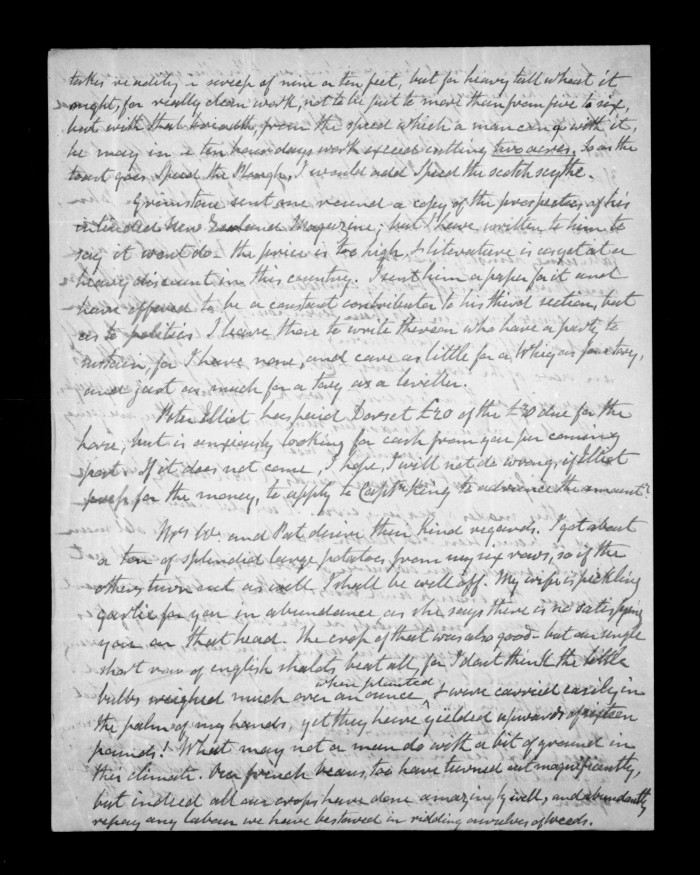 takes readily a sweep of nine or ten feet, but for heavy tall wheat it
ought, for really clean work, not to be put to more than from five to six,
but with that breadth, from the speed which a man can go with it,
he may in a ten hour days work exceed cutting two acres. So as the
toast goes Speed the Plough, I would add Speed the scotch scythe.
Grimstone sent one round a copy of the prospectus of his
intended New Zealand Magazine; but I have written to him to
say it wont do - the price is too high, & literature is as yet at a
heavy discount in this country. I sent him a paper for it and
have offered to be a constant contributor to his third section, but
as to politics I leave those to write thereon who have a party to
sustain, for I have none, and care as little for a Whig as for a tory,
and just as much for a tory as a leveller.
Peter Elliot has paid Dorset £20 of the £30 due for the
horse, but is anxiously looking for cash from you per coming
post. If it does not come, I hope, I will not do wrong, if Elliot
for the money, to apply to Captn King to advance the amount.
Mrs W. and Pat desire their kind regards. I got about
a ton of splendid large potatoes from my six rows, so if the
others turn out as well I shall be well off. My wife is pickling
garlic for you in abundance as she says there is no satisfying
you on that head. The crop of that was also good - but our single
short row of english shalots beat all, for I dont think the little
bulbs weighed much over an ounce when planted, & were carried easily in
the palm of my hands, yet they have yielded upwards of sixteen
pounds! What may not a man do with a bit of ground in
this climate. Our french beans, too have turned out magnificently,
but indeed all our crops have done amazingly well, and abundantly
repay any labour we have bestowed in ridding ourselves of weeds.